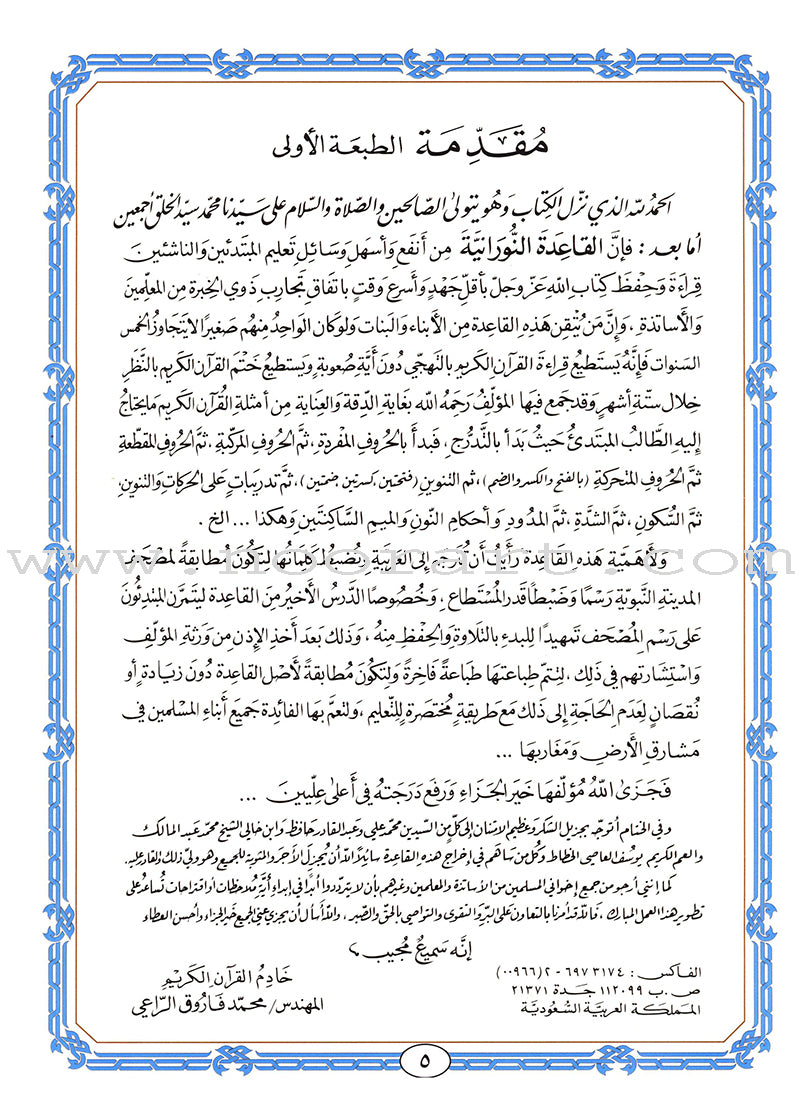 مُقَدِّمَة الطبعَة الأولى
الحمدُ للّه الذي نزّل الكِتاب وَهُو يتولى الصّالحين والصّلاة والسّلام على سَيّدنا محمّد سيّد الخلق أجمعين
أما بعد : فإنَّ القَاعِدَة النُّورَانيَّة مِن أنفع وَأسهَل وَسَائِل تَعليم المبتَدئين وَالنّاشئين
قِرَاءَةَ وَحِفْظَ كِتَابِ اللّهِ عَزّ وجَلّ بأقلّ جَهْدٍ وَأسرَع وَقتٍ باتفاق تجَارِب ذَوي الخِبرة مِن المعلِّمين
وَالأسَاتذة ، وَإنَّ مَن يُتْقِن هَذِهِ القاعِدة مِن الأبناء وَالبَنات وَلوكَان الوَاحِدُ مِنهُم صَغيرًا لا يتَجاوزُ الخمس
السَنوات فَإنَّهُ يَستَطيعُ قِراءةَ القرآن الكَريم بالتهَجّي دُونَ أيَّة صُعوبةٍ وَيستطيعُ خَتْم القرآن الكَريم بالنَّظرِ
خِلال ستّة أشهرٍ وَقد جَمع فيهَا المؤلّفُ رَحِمَهُ اللّه بغايةِ الدِّقة وَالعِناية مِن أمثلةِ القُرآن الكريم مَا يحتَاجُ
إليهِ الطَّالبُ المبتَدئُ حَيثُ بَدَأ بالتَّدرُّج ، فَبدأ بالحُروف المُفْردة ، ثمَّ الحُروف المركّبة ، ثمَّ الحُروف المقطّعة
ثمَّ الحُروف المتحركة (بالفتح والكسر والضم) ، ثم التنوين (فتحتين ، كسرتين ، ضمتين) ، ثمَّ تدريباتٍ عَلى الحركات وَالتنوين
ثمَّ السُّكون ، ثمَّ الشدّة ، ثمَّ المدُود وَأحكامِ النّون وَالميم السَّاكنَتين وَهكذا ... الخ .
وَلأهَمّية هَذِه القَاعِدة رَأيتُ أن تُتَرجم إلى العَرَبيةِ وَتُضبط كلِمَاتُها لتكُونَ مُطابقةً لمصحف
المدينةِ النّبويّة رَسْمًا وَضَبْطًا قَدر المُسْتطاع ، وَخُصُوصًا الدَّرسُ الأخيرُ مِنَ القَاعِدة ليتَمرَّن المبتَدِئُونَ
عَلى رَسْم المُصْحَف تمهيدًا للبدءِ بالتِّلاوة وَالحِفْظِ مِنهُ ، وَذلكَ بَعدَ أخذِ الإذن مِن وَرَثةِ المؤلّفِ
وَاسْتِشَارَتهم في ذَلِكَ ، لِتَتمّ طِبَاعَتهَا طِبَاعةً فَاخِرةً وَلِتكونَ مُطابقةً لأصل القَاعِدة دُونَ زيَادةٍ أو
نُقصَانٍ لِعَدم الحَاجة إلى ذَلكَ مَع طَريقةٍ مُختَصَرة لِلتَّعليم ، وَلتعمَّ بهَا الفَائِدة جَميعَ أبنَاء المسْلمين في
مَشارق الأرض وَمغَاربهَا ...
فَجَزَى اللّهُ مُؤلّفهَا خَيرَ الجَزَاءِ وَرَفعَ دَرَجَتهُ في أعلى عِلّيينَ ...
وفي الختام أتوجّه بجزيل الشكر وعظيم الامتنان إلى كلٍّ من السيّدين محمّد علي وعبد القادر حافظ وابن خالي الشيخ محمّد عبد المالك
والعمّ الكريم يوسف العاصي الخطاط وكُل من ساهم في إخراج هذه القاعدة سائلًا اللّه أن يُجزل الأجر والمثوبة للجميع وهو وليّ ذلك والقادر عليه .
كما إنني أرجو من جميع إخواني المسلمين من الأساتذة والمعلمين وغيرهم بأن لا يتردّدوا أبدًا في إبداء أيّة ملاحظات أو اقتراحات تُساعد على
تطوير هذا العمل المبارك ، فاللّه قد أمرنا بالتعاون على البرّ والتقوى والتواصي بالحق والصّبر ، واللّه أسأل أن يجزي عني الجميع خير الجزاء وأحسن العطاء
إنّه سَميعٌ مُجيب
خَادِمُ القرآن الكَريْم
المهندس/ محمّد فَاروق الرّاعِي
الفاكس : ٦٩٧٣١٧٤ - ٢ (٠٠٩٦٦)
ص . ب ١١٢٠٩٩ جَدة ٢١٣٧١
المَملكة العَربيَّة السُّعُوديَّة
٥
www.noorart.com